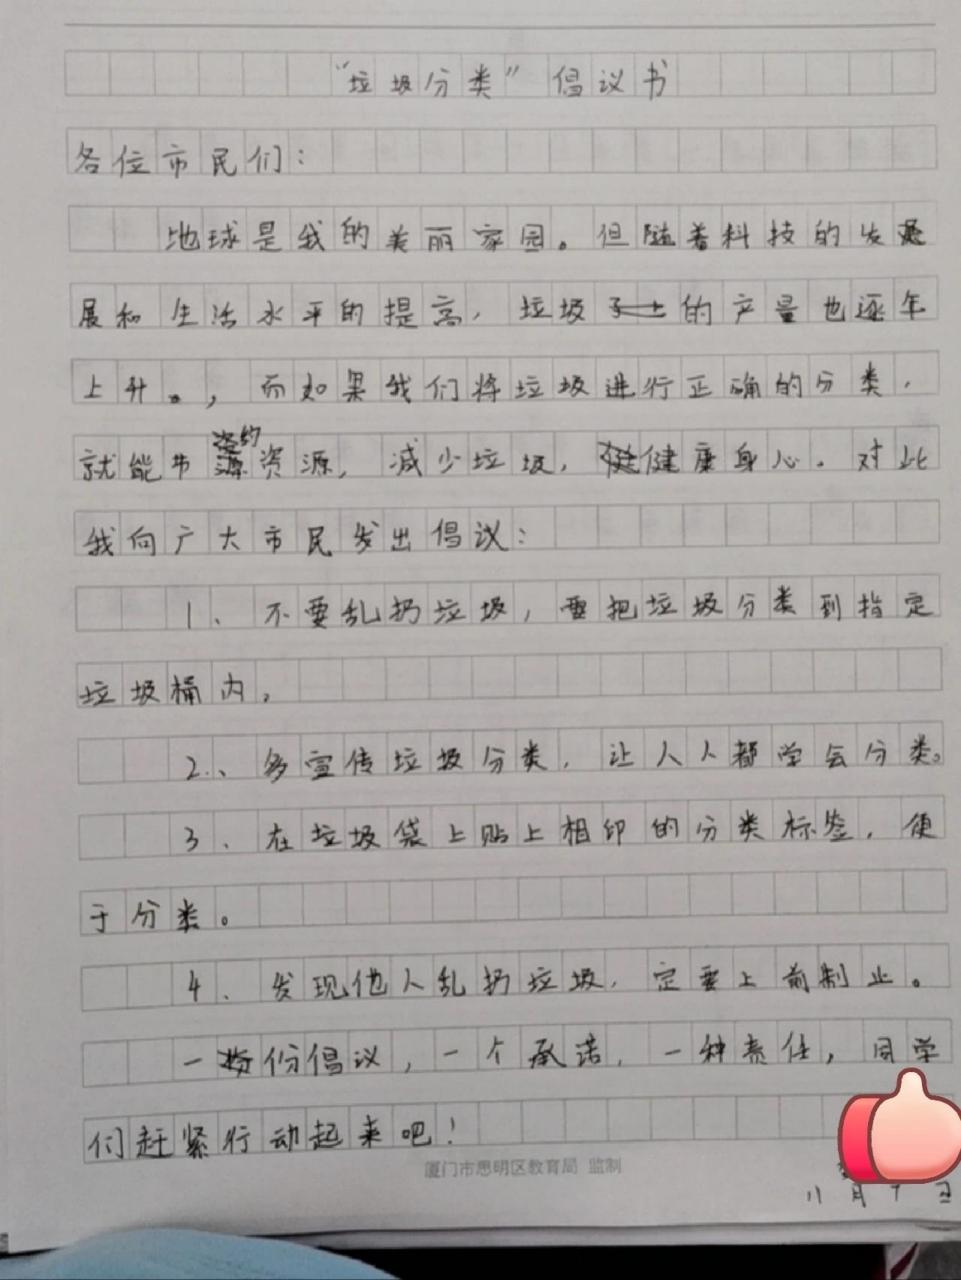 “垃圾分类”倡议书
各位市民们：
地球是我的美丽家园。但随着科技的发
展和生活水平的提高，垃圾的产量也逐年
上升。，而如果我们将垃圾进行正确的分类，
就能节约资源，减少垃圾，健康身心。对此
我向广大市民发出倡议：
1、不要乱扔垃圾，要把垃圾分类到指定
垃圾桶内。
2、多宣传垃圾分类，让人人都学会分类。
3、在垃圾袋上贴上相印的分类标签，便
于分类。
4、发现他人乱扔垃圾，定要上前制止。
一份倡议，一个承诺，一种责任，同学
们赶紧行动起来吧！
厦门市思明区教育局 监制
11月 日